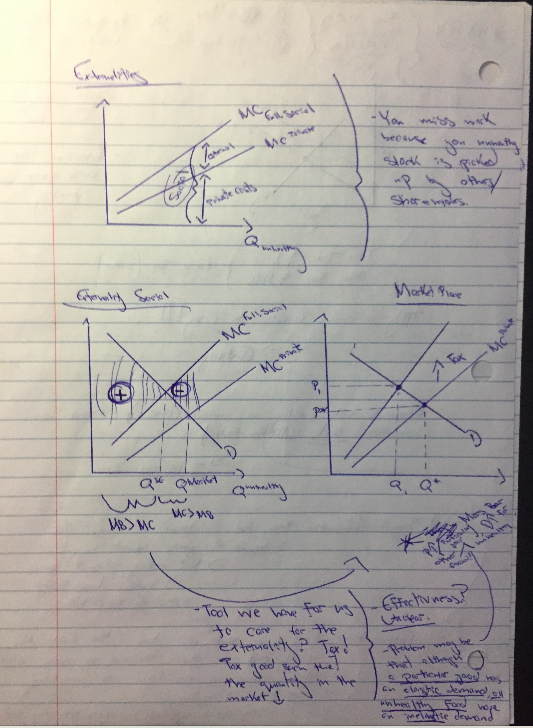 Externalities
MC Full Social
MC Private
External
Social
Private costs
Q unhealthy
- You miss work
because you unhealthy
slack is picked
up by others/
Shareholders.
Externality Social
MC Full Social
MC Private
D
Q Soc
Q Market
Q unhealthy
MB > MC
MC > MB
Market Place
MC Private
↑ Tax
P1
D
Q1
Q*
- Tool we have for us
to care for the
externality? Tax!
Tax good such that
the quantity in the
market ↓
- Effectiveness?
Unclear.
- Problem may be
that although
a particular good has
an elastic demand, all
unhealthy food have
an inelastic demand